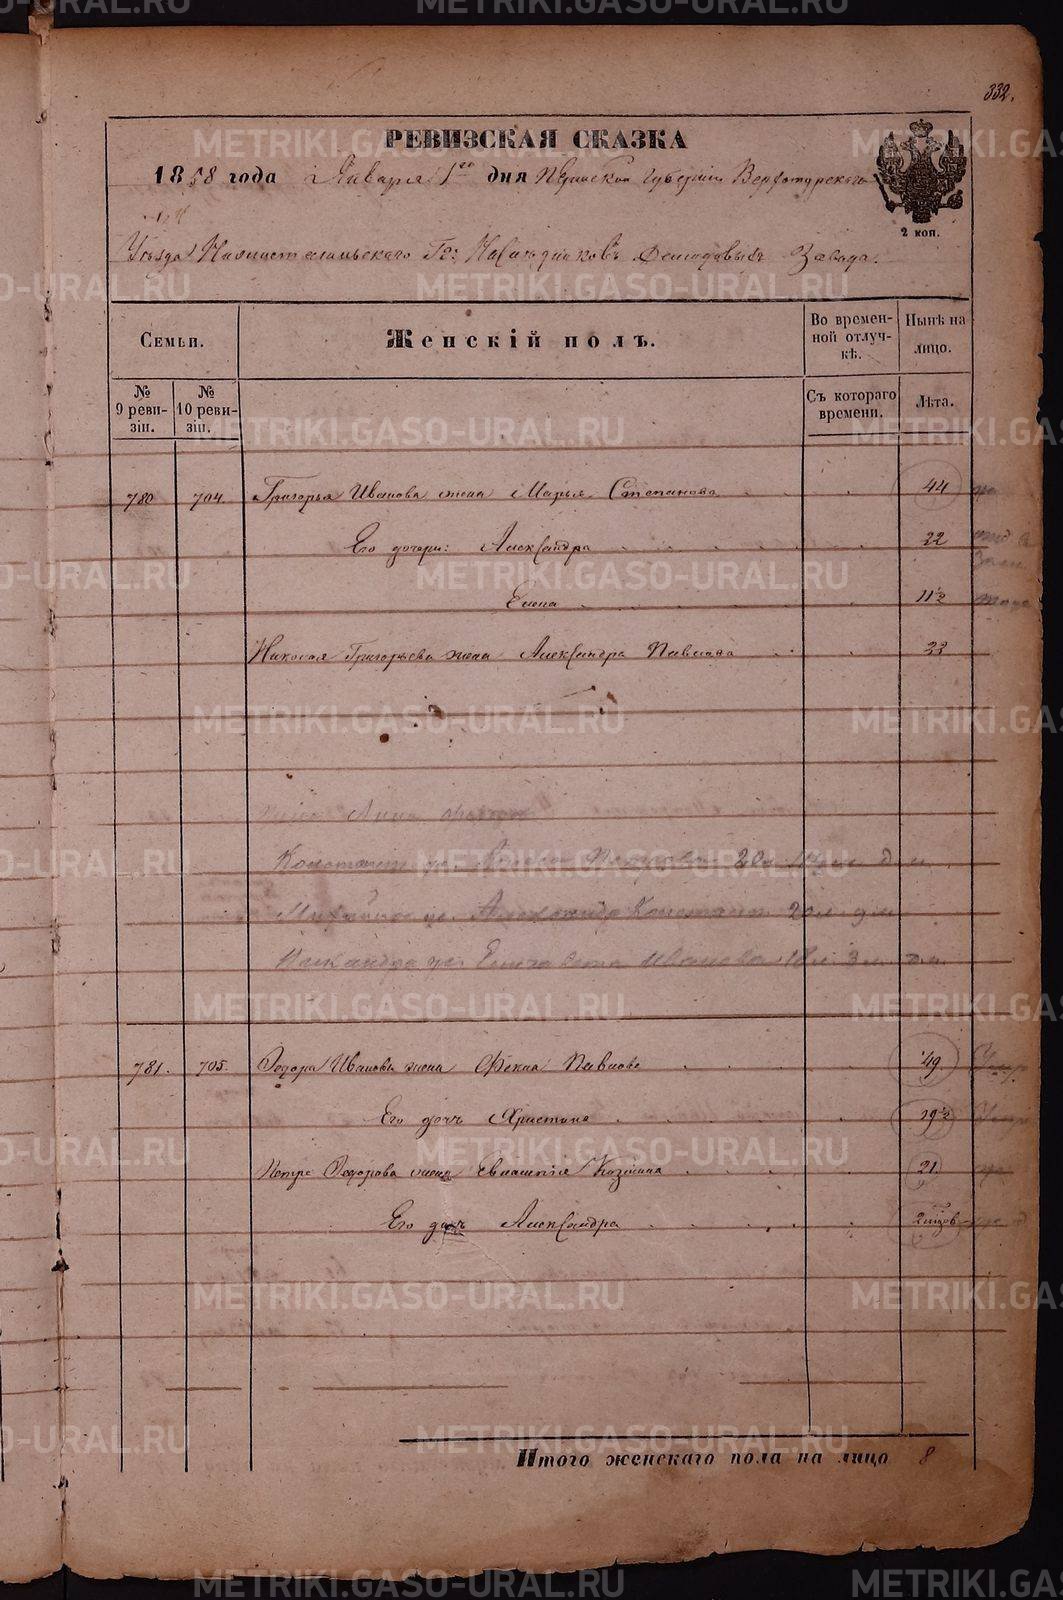 332.
РЕВИЗСКАЯ СКАЗКА
1858 года Января 1го дня Пермской Губернии Верхотурскаго
2 коп.
Уезда Нижнетагильскаго Гг: Наследниковъ Демидовыхъ Завода.
Семьи.
Женскій полъ.
Во временной отлучкѣ.
Нынѣ на лицо.
№ 9 ревизіи.
№ 10 ревизіи.
Съ котораго времени.
Лѣта.
780 704. Григорья Иванова жена Марья Степанова 44
Его дочери: Александра 22
Елена 11½
Николая Григорьева жена Александра Павлова 23
Анна
Петрова 20
Александра Констант 20
Елизавета Иванова 18
781. 705. Федора Иванова жена Фекла Павлова 49
Его дочь Христина 19½
Петра Федорова жена Евлампія Козмина 21
Его дочь Александра
Итого женскаго пола на лицо 8
METRIKI.GASO-URAL.RU